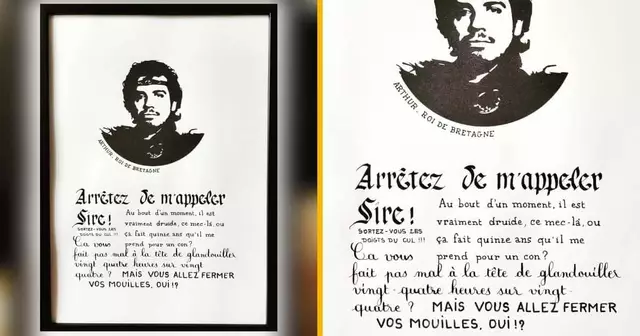 ARTHUR, ROI DE BRETAGNE
Arrêtez de m'appeler
Sire!
Au bout d'un moment, il est
vraiment druide, ce mec-là, ou
ça fait quinze ans qu'il me
prend pour un con?
SORTEZ-VOUS LES
DOIGTS DU CUL !!!
Ça vous
fait pas mal à la tête de glandouiller
vingt-quatre heures sur vingt-
quatre ? MAIS VOUS ALLEZ FERMER
VOS MOUILLES, OUI !?
ARTHUR, ROI DE BRETAGNE
Arrêtez de m'appeler
Sire!
Au bout d'un moment, il est
vraiment druide, ce mec-là, ou
ça fait quinze ans qu'il me
prend pour un con?
SORTEZ-VOUS LES
DOIGTS DU CUL !!!
Ça vous
fait pas mal à la tête de glandouiller
vingt-quatre heures sur vingt-
quatre ? MAIS VOUS ALLEZ FERMER
VOS MOUILLES, OUI !?